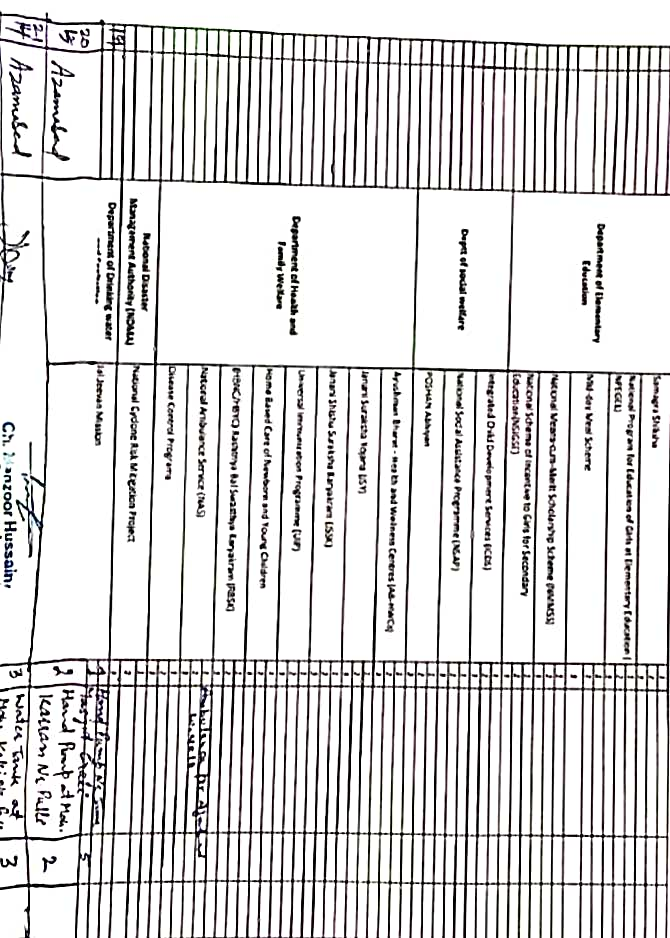 Department of Elementary
Education
Samagra Shiksha
National Program for Education of Girls at Elementary Education (
NPEGEL)
Mid-day Meal Scheme
National Means-cum-Merit Scholarship Scheme (NMMSS)
National Scheme of Incentive to Girls for Secondary
Education(NSIGSE)
Deptt of social welfare
Integrated Child Development Services (ICDS)
National Social Assistance Programme (NSAP)
POSHAN Abhiyan
Department of Health and
Family Welfare
Ayushman Bharat - Health and Wellness Centres (AB-HWCs)
Janani Suraksha Yojana (JSY)
Janani Shishu Suraksha Karyakram (JSSK)
Universal Immunization Programme (UIP)
Home Based Care of Newborn and Young Children
(HBNC/HBYC) Rashtriya Bal Swasthya Karyakram (RBSK)
National Ambulance Service (NAS)
Ambulance for
Disease Control Programs
National Disaster
Management Authority (NDMA)
National Cyclone Risk Mitigation Project
19
Department of Drinking water
and Sanitation
Jal Jeevan Mission
1 Hand Pump
5
20
Azamabad
2 Hand Pump at Moh.
2
21
Azamabad
3 Water Tank at
3
Ch. Manzoor Hussain,